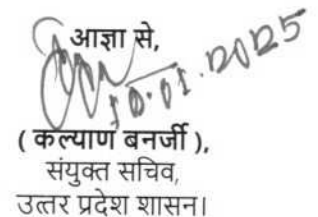 आज्ञा से,
10.01.2025
( कल्याण बनर्जी ),
संयुक्त सचिव,
उत्तर प्रदेश शासन।